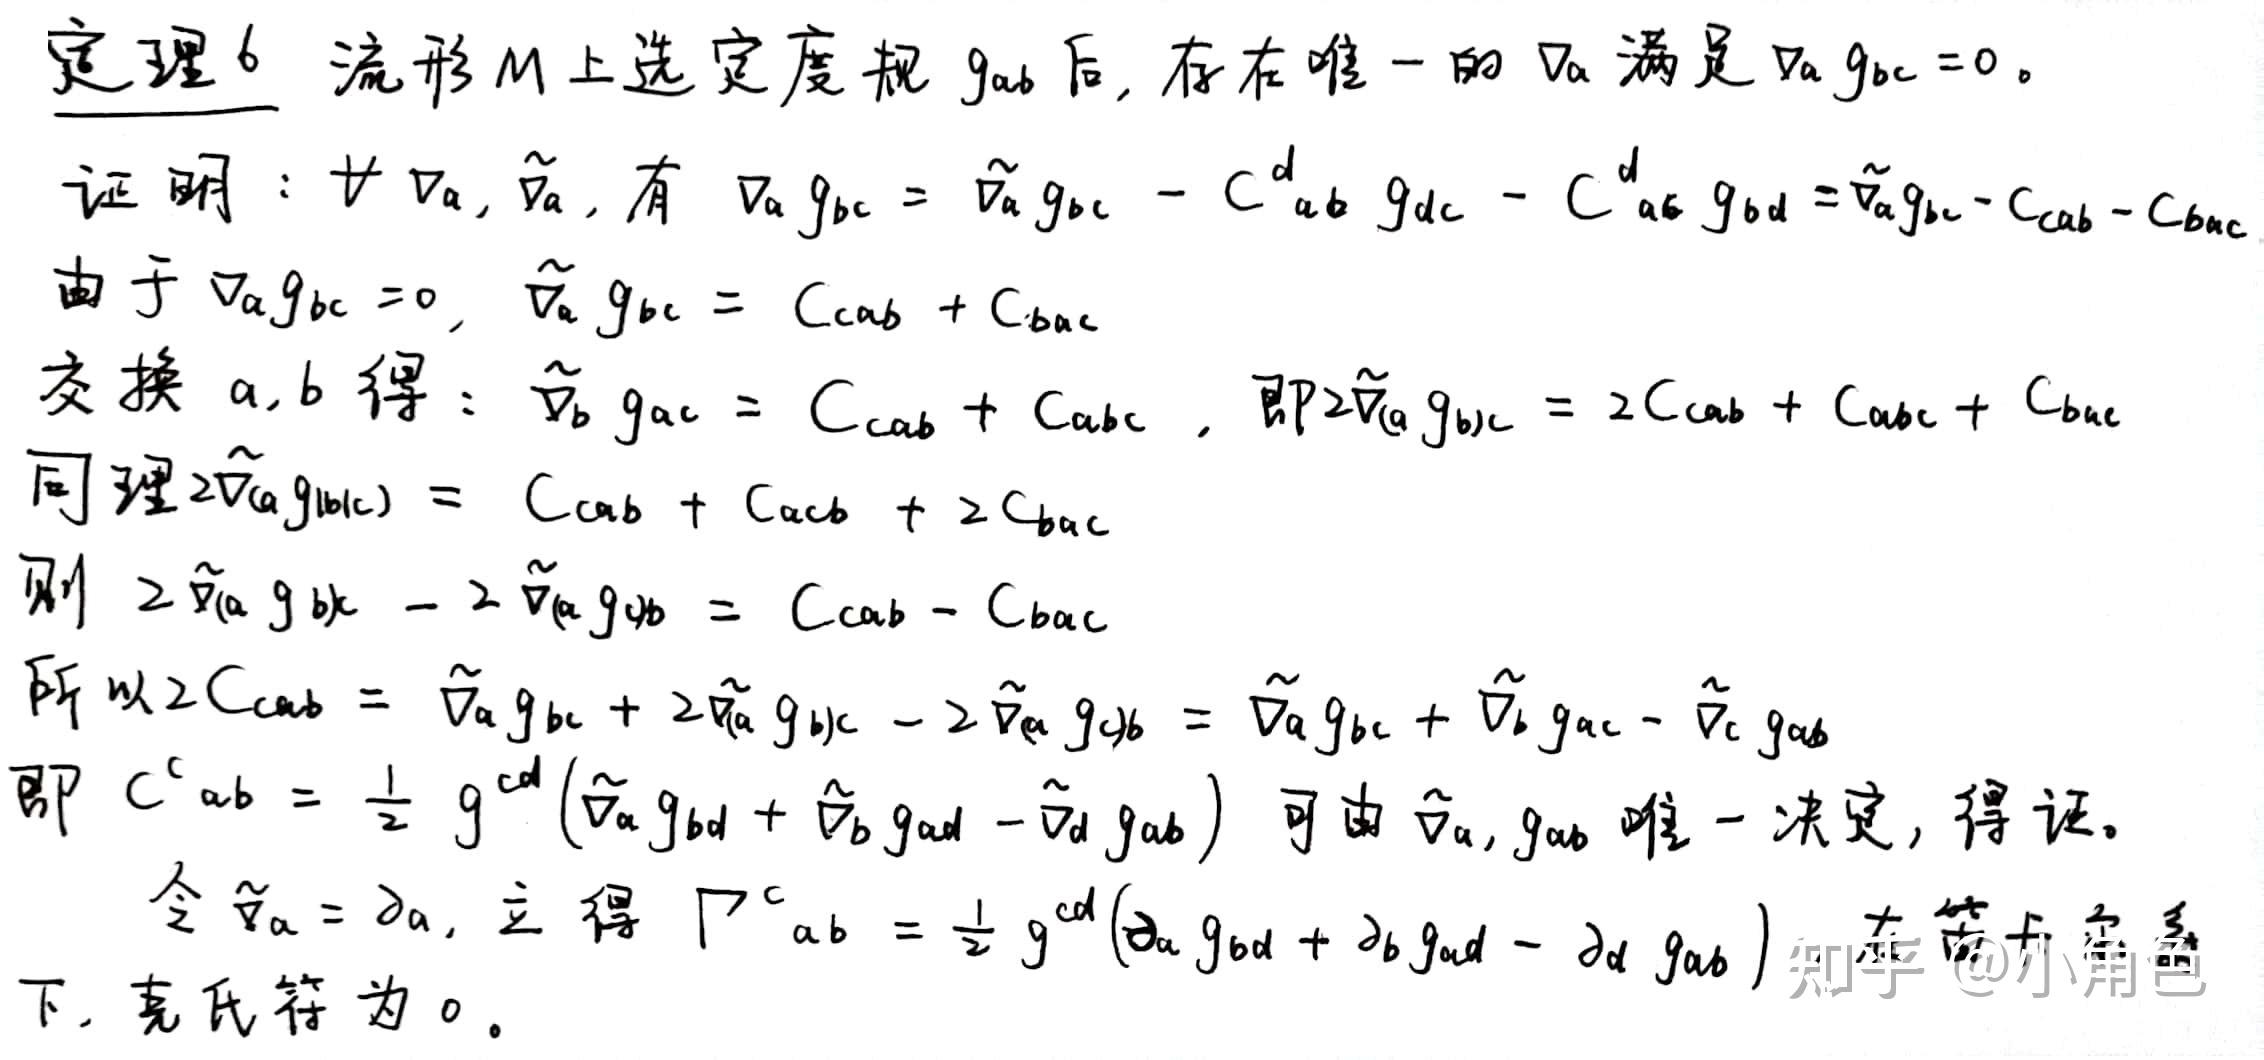 定理6 流形M上选定度规 g_{ab} 后, 存在唯一的 ∇_a 满足 ∇_a g_{bc} = 0。
证明: ∀ ∇_a, ∇̃_a, 有 ∇_a g_{bc} = ∇̃_a g_{bc} - C^d_{ab} g_{dc} - C^d_{ac} g_{bd} = ∇̃_a g_{bc} - C_{cab} - C_{bac}
由于 ∇_a g_{bc} = 0, ∇̃_a g_{bc} = C_{cab} + C_{bac}
交换 a, b 得: ∇̃_b g_{ac} = C_{cab} + C_{abc}, 即 2∇̃_{(a} g_{b)c} = 2C_{cab} + C_{abc} + C_{bac}
同理 2∇̃_{(a} g_{|b|c)} = C_{cab} + C_{acb} + 2C_{bac}
则 2∇̃_{(a} g_{b)c} - 2∇̃_{(a} g_{c)b} = C_{cab} - C_{bac}
所以 2C_{cab} = ∇̃_a g_{bc} + 2∇̃_{(a} g_{b)c} - 2∇̃_{(a} g_{c)b} = ∇̃_a g_{bc} + ∇̃_b g_{ac} - ∇̃_c g_{ab}
即 C^c_{ab} = 1/2 g^{cd} (∇̃_a g_{bd} + ∇̃_b g_{ad} - ∇̃_d g_{ab}) 可由 ∇̃_a, g_{ab} 唯一决定, 得证。
令 ∇̃_a = ∂_a, 立得 Γ^c_{ab} = 1/2 g^{cd} (∂_a g_{bd} + ∂_b g_{ad} - ∂_d g_{ab}), 在笛卡尔系
下, 克氏符为0。
知乎 @小角色